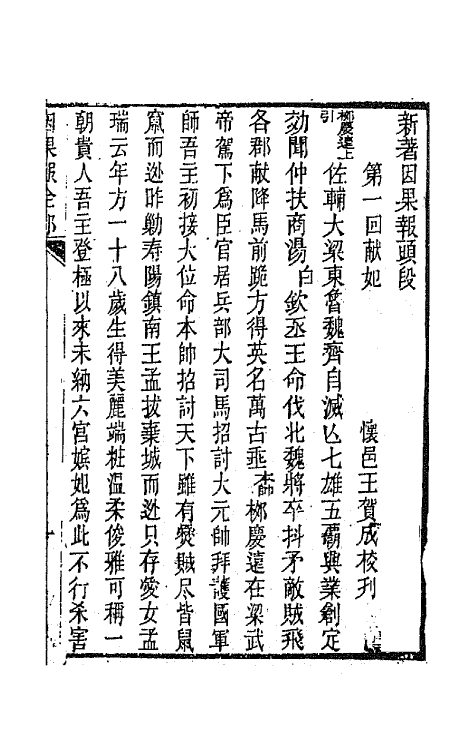 新著因果報頭段
第一回献妃 懷邑王賀成校刋
柳慶遠上引 佐輔大梁東魯魏齊自滅亾七雄五覇興業創定
効聞仲扶商湯 白 欽丞王命伐北魏將卒抖矛敵賊飛
各郡献降馬前跪方得英名萬古垂 本帥 柳慶遠在梁武
帝駕下爲臣官居兵部大司馬招討大元帥拜護國軍
師吾主初接大位命本帥招討天下雖有變賊尽皆鼠
竄而逊昨勦寿陽鎮南王孟拔棄城而逊只存愛女孟
瑞云年方一十八歲生得美麗端粧温柔俊雅可稱一
朝貴人吾主登極以來未納六宮嬪妃爲此不行杀害
因果報全部